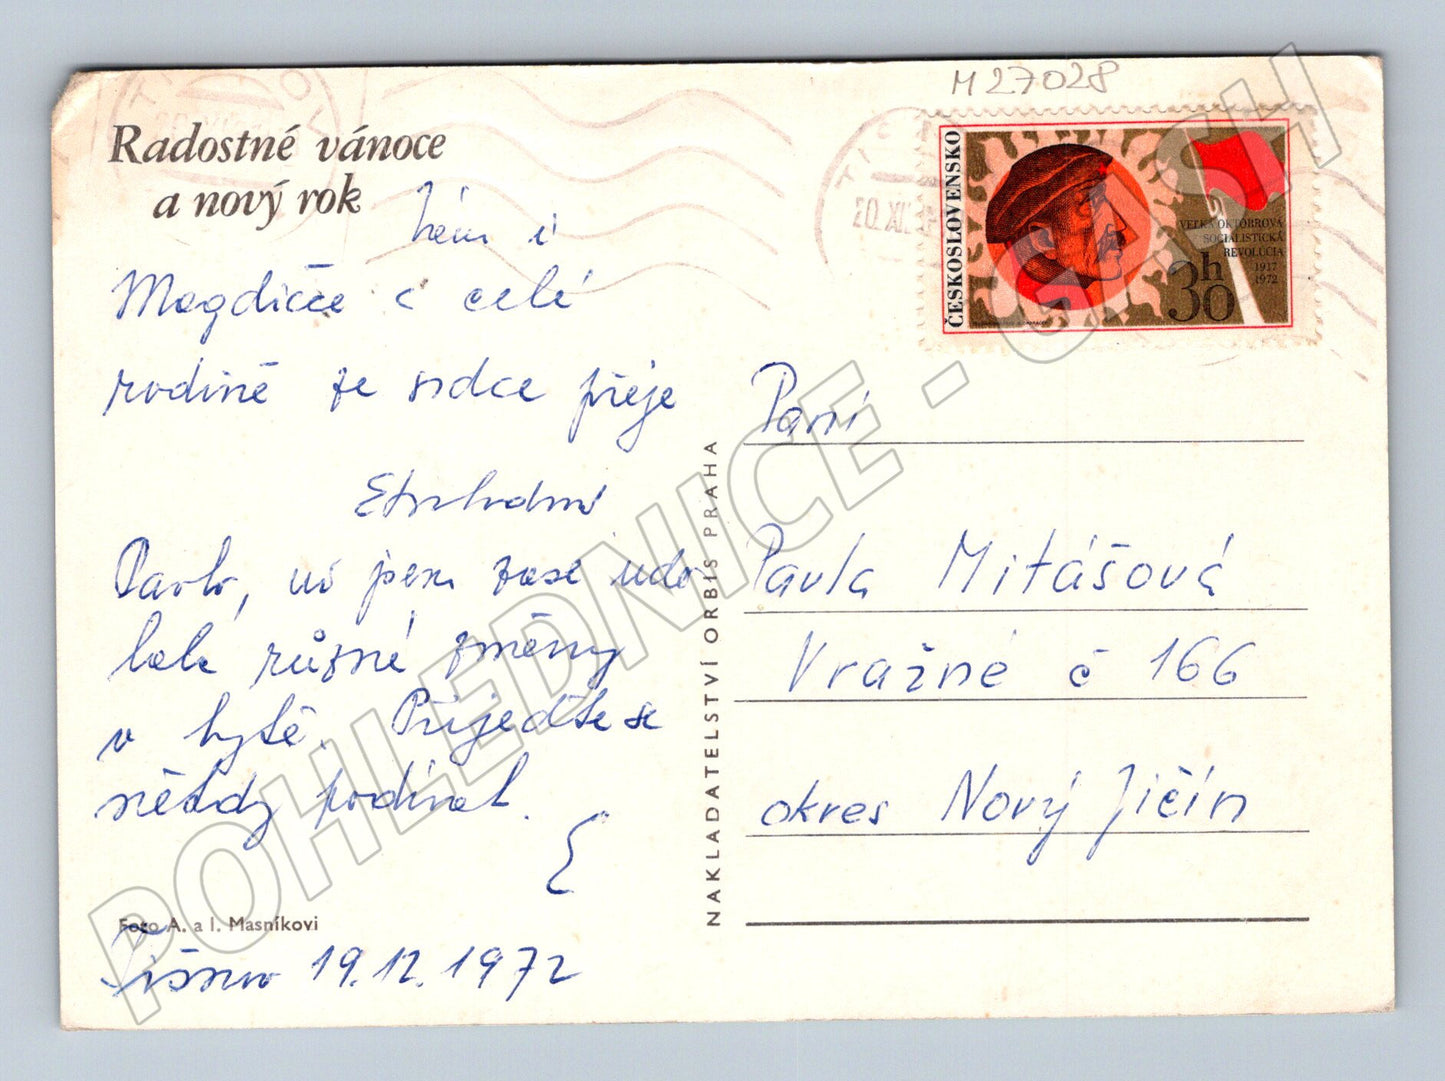 M 27028
Radostné vánoce
a nový rok
Vám i
Magdičce s celé
rodině ze srdce přeje
Pavlo, už jsem zase udě
lala různé změny
v bytě. Přijeďte se
někdy podívat.
Foto A. a I. Masníkovi
Tišnov 19.12.1972
NAKLADATELSTVÍ ORBIS PRAHA
ČESKOSLOVENSKO
VEĽKÁ OKTÓBROVÁ
SOCIALISTICKÁ
REVOLÚCIA
1917
1972
30h
Paní
Pavla Mitášová
Vražné č 166
okres Nový Jičín
POHLEDNICE - GJ.SH